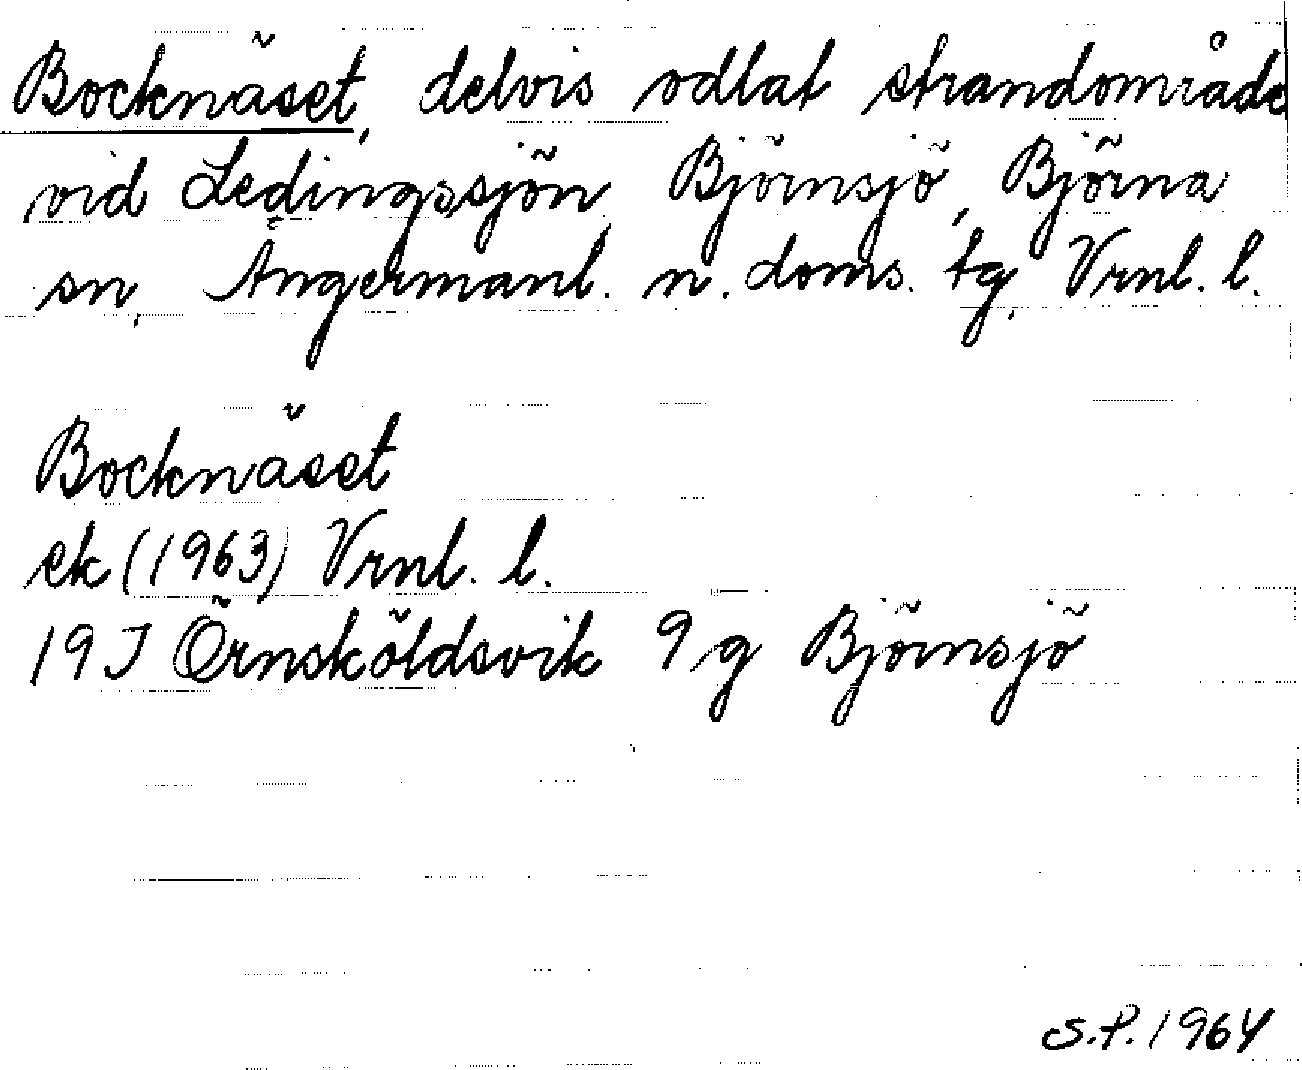 Bocknäset, delvis odlat strandområde
vid Ledingssjön, Björnsjö, Björna
sn, Ångermanl. n. doms. tg, Vrnl. l.
Bocknäset
ek (1963) Vrnl. l.
19J Örnsköldsvik 9 g Björnsjö
S.P. 1964